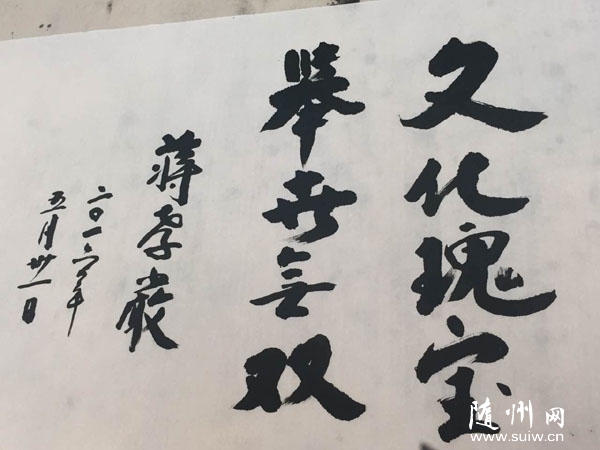 文化瑰宝
舉世无双
蒋孝嚴
二〇一六年
五月卅一日
随州网
www.suiw.cn